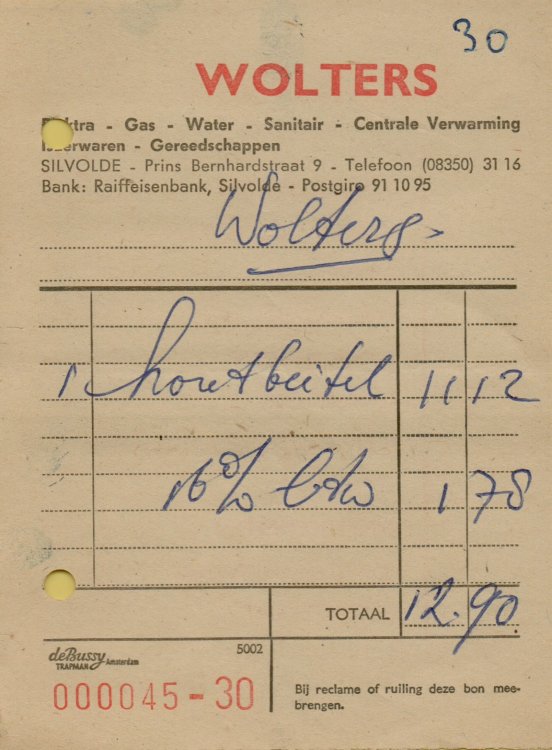 30
WOLTERS
Elektra - Gas - Water - Sanitair - Centrale Verwarming
IJzerwaren - Gereedschappen
SILVOLDE - Prins Bernhardstraat 9 - Telefoon (08350) 31 16
Bank: Raiffeisenbank, Silvolde - Postgiro 91 10 95
Wolters
1 houtbeitel 11 12
16% btw 1 78
TOTAAL 12.90
deBussy 5002
TRAPMAN Amsterdam
000045-30
Bij reclame of ruiling deze bon mee-
brengen.